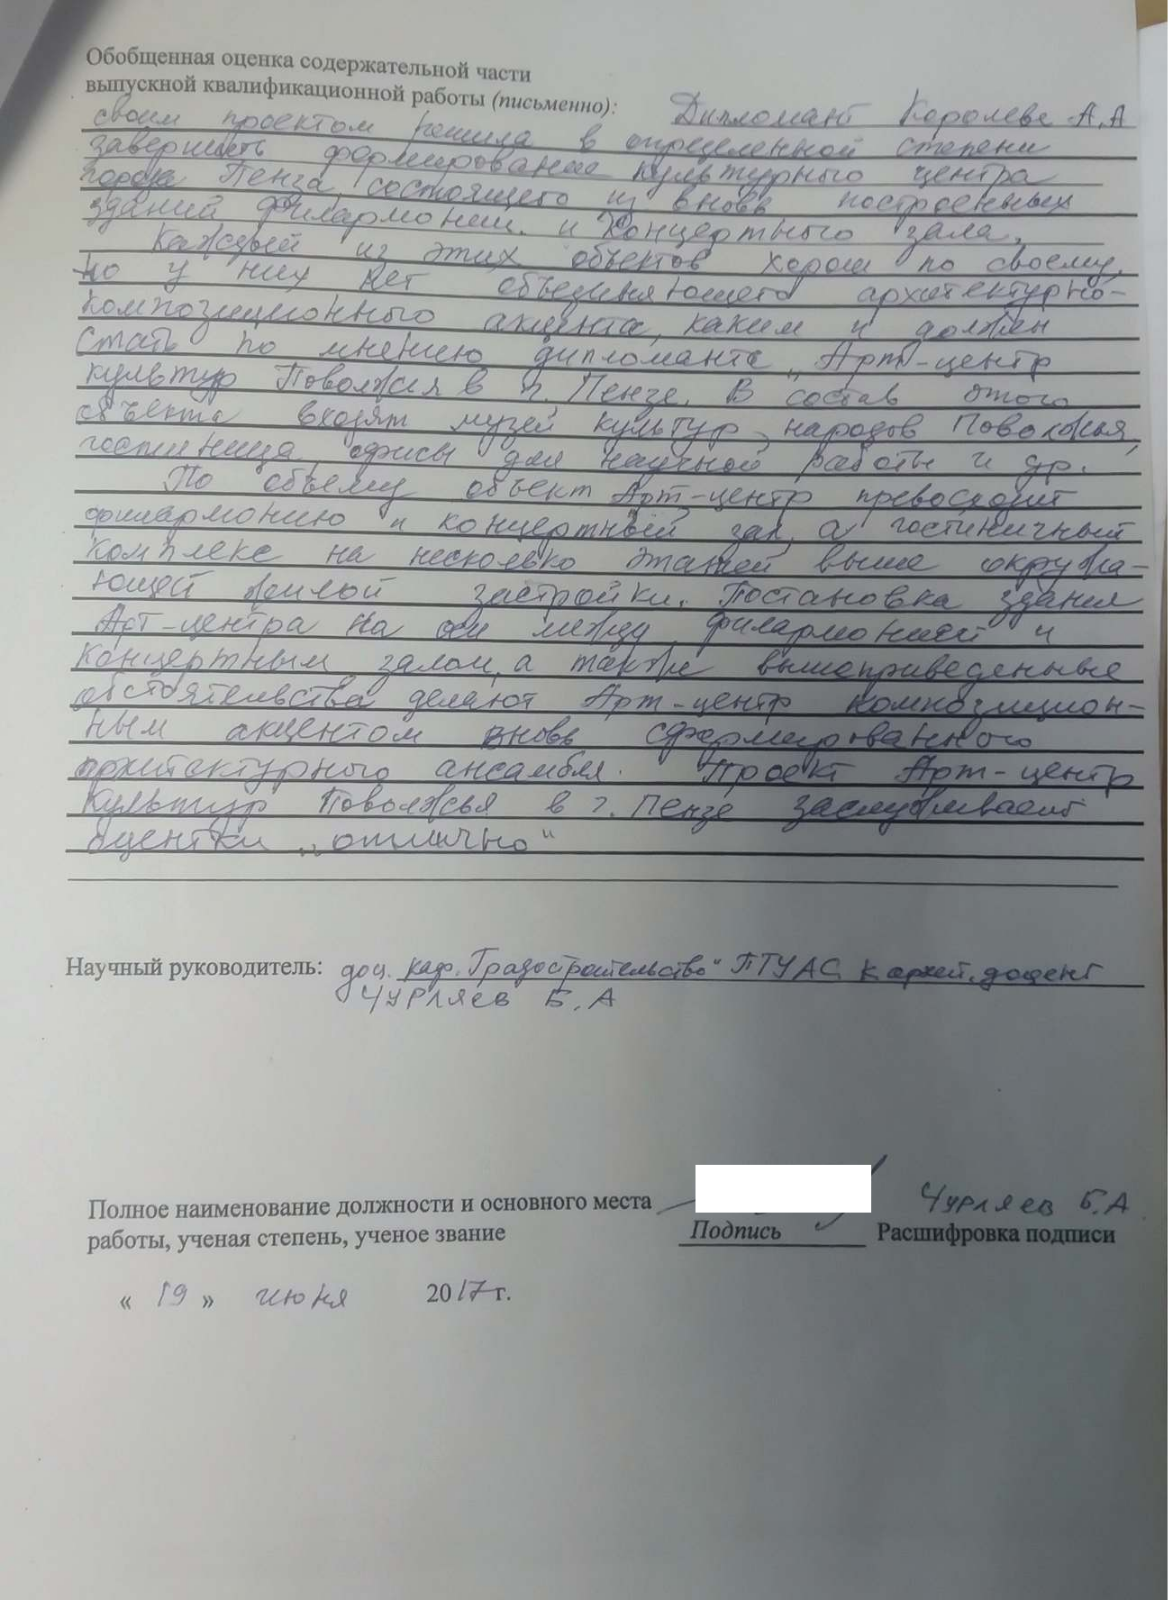 Обобщенная оценка содержательной части
выпускной квалификационной работы (письменно): Дипломант Королева А.А
своим проектом решила в определенной степени
завершить формирование культурного центра
города Пенза, состоящего из вновь построенных
зданий филармонии и Концертного зала.
Каждый из этих объектов хорош по своему,
но у них нет объединяющего архитектурно-
композиционного акцента, каким и должен
стать по мнению дипломанта „Арт-центр
культур Поволжья в г. Пензе. В состав этого
объекта входят музей культур народов Поволжья,
гостиница, офисы для научной работы и др.
По объему объект Арт-центр превосходит
филармонию и концертный зал, а гостиничный
комплекс на несколько этажей выше окружа-
ющей жилой застройки. Постановка здания
Арт-центра на оси между филармонией и
концертным залом, а также вышеприведенные
обстоятельства делают Арт-центр композицион-
ным акцентом вновь сформированного
архитектурного ансамбля. Проект Арт-центр
Культур Поволжья в г. Пензе заслуживает
оценки „отлично“
Научный руководитель: доц. каф. „Градостроительство“ ПГУАС, к архит. доцент
Чурляев Б.А
Полное наименование должности и основного места
работы, ученая степень, ученое звание
Подпись
Чурляев Б.А
Расшифровка подписи
« 19 » июня 2017 г.